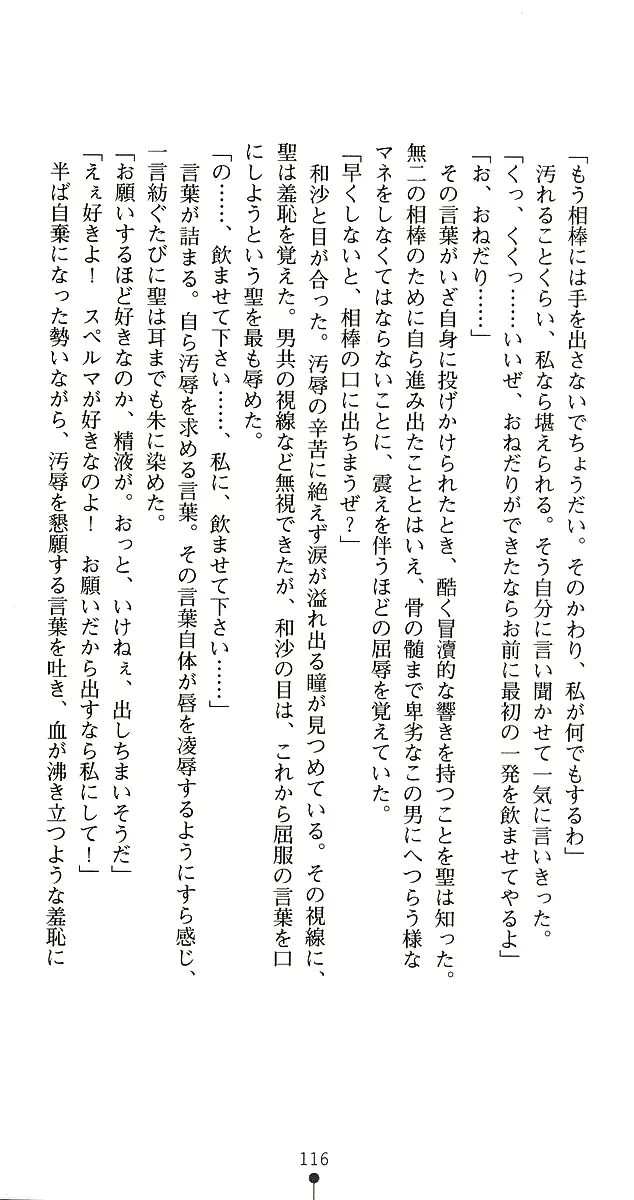 「もう相棒には手を出さないでちょうだい。そのかわり、私が何でもするわ」
汚れることくらい、私なら堪えられる。そう自分に言い聞かせて一気に言いきった。
「くっ、くくっ……いいぜ、おねだりができたならお前に最初の一発を飲ませてやるよ」
「お、おねだり……」
その言葉がいざ自身に投げかけられたとき、酷く冒瀆的な響きを持つことを聖は知った。
無二の相棒のために自ら進み出たこととはいえ、骨の髄まで卑劣なこの男にへつらう様な
マネをしなくてはならないことに、震えを伴うほどの屈辱を覚えていた。
「早くしないと、相棒の口に出ちまうぜ？」
和沙と目が合った。汚辱の辛苦に絶えず涙が溢れ出る瞳が見つめている。その視線に、
聖は羞恥を覚えた。男共の視線など無視できたが、和沙の目は、これから屈服の言葉を口
にしようという聖を最も辱めた。
「の……、飲ませて下さい……、私に、飲ませて下さい……」
言葉が詰まる。自ら汚辱を求める言葉。その言葉自体が唇を凌辱するようにすら感じ、
一言紡ぐたびに聖は耳までも朱に染めた。
「お願いするほど好きなのか、精液が。おっと、いけねぇ、出しちまいそうだ」
「えぇ好きよ！　スペルマが好きなのよ！　お願いだから出すなら私にして！」
半ば自棄になった勢いながら、汚辱を懇願する言葉を吐き、血が沸き立つような羞恥に
116